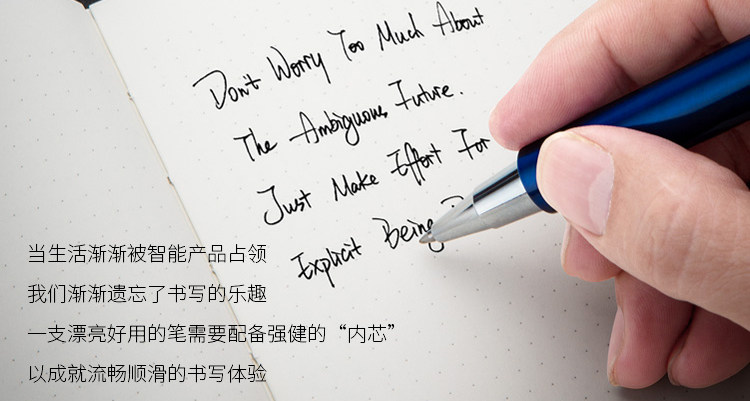 Don't Worry Too Much About
The Ambiguous Future.
Just Make Effort For
Explicit Being
当生活渐渐被智能产品占领
我们渐渐遗忘了书写的乐趣
一支漂亮好用的笔需要配备强健的“内芯”
以成就流畅顺滑的书写体验